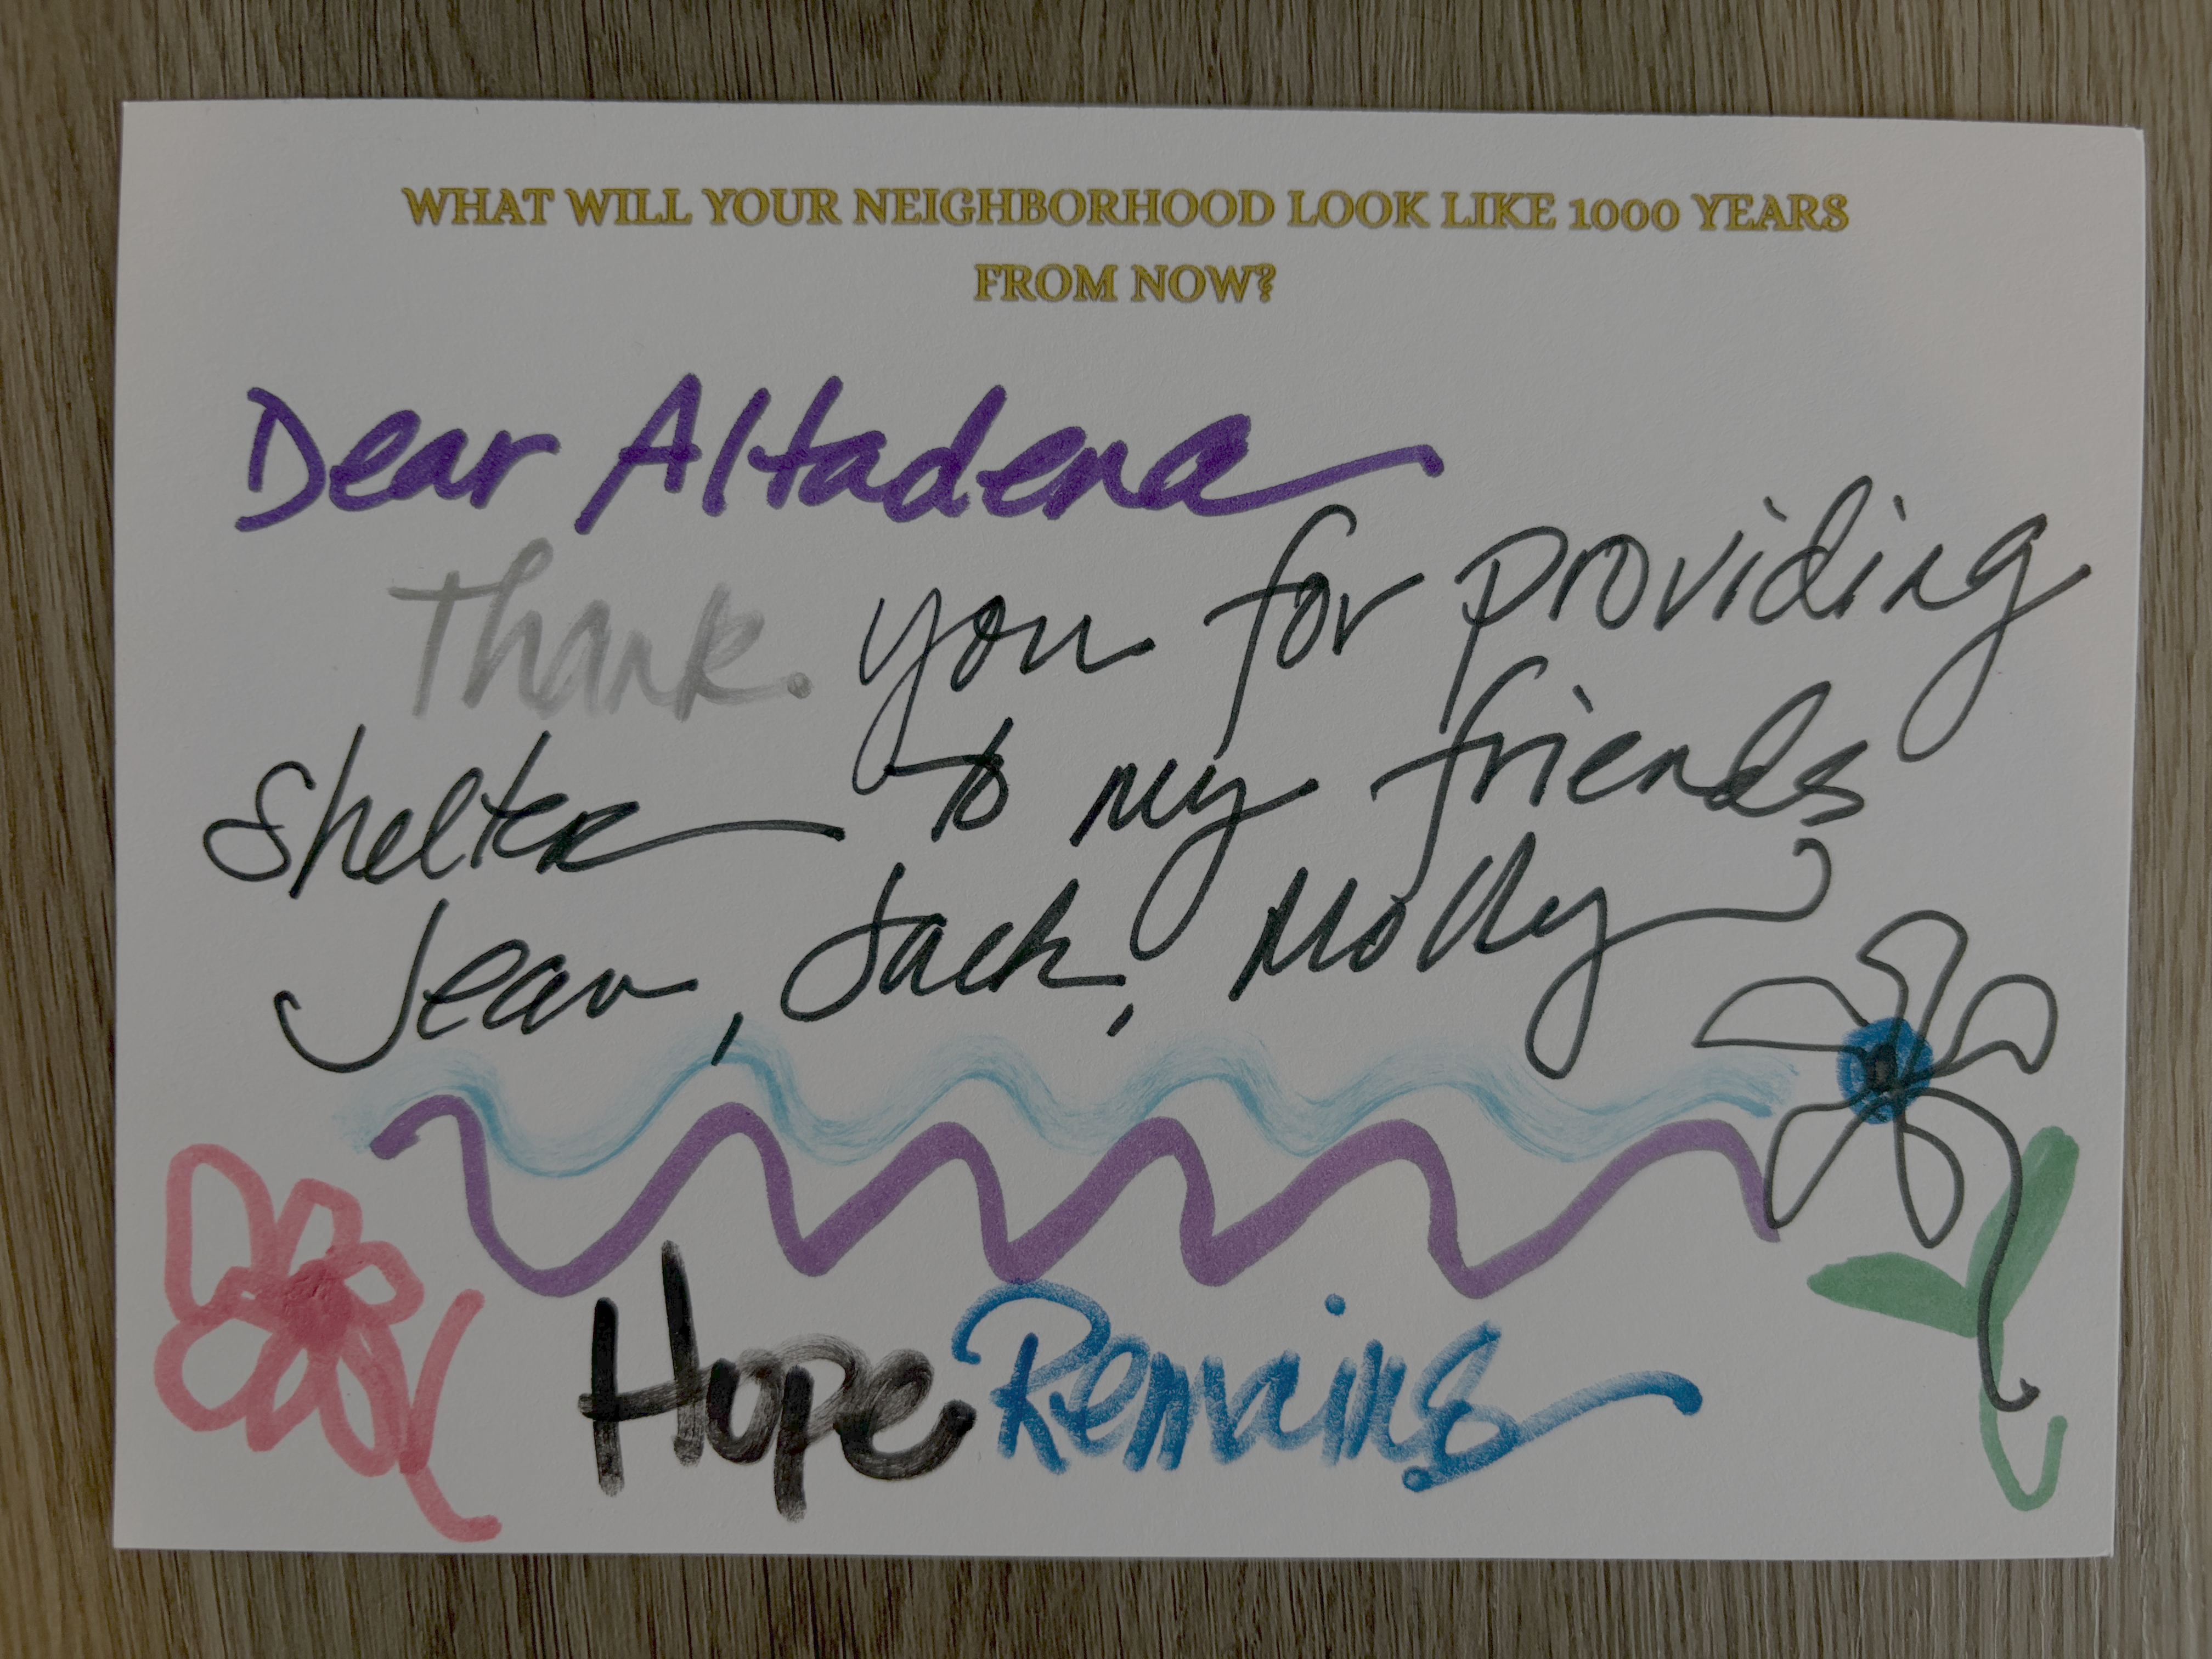 WHAT WILL YOUR NEIGHBORHOOD LOOK LIKE 1000 YEARS
FROM NOW?
Dear Altadena
Thank you for providing
Shelter to my friends
Jean, Jack, Molly
Hope Remains